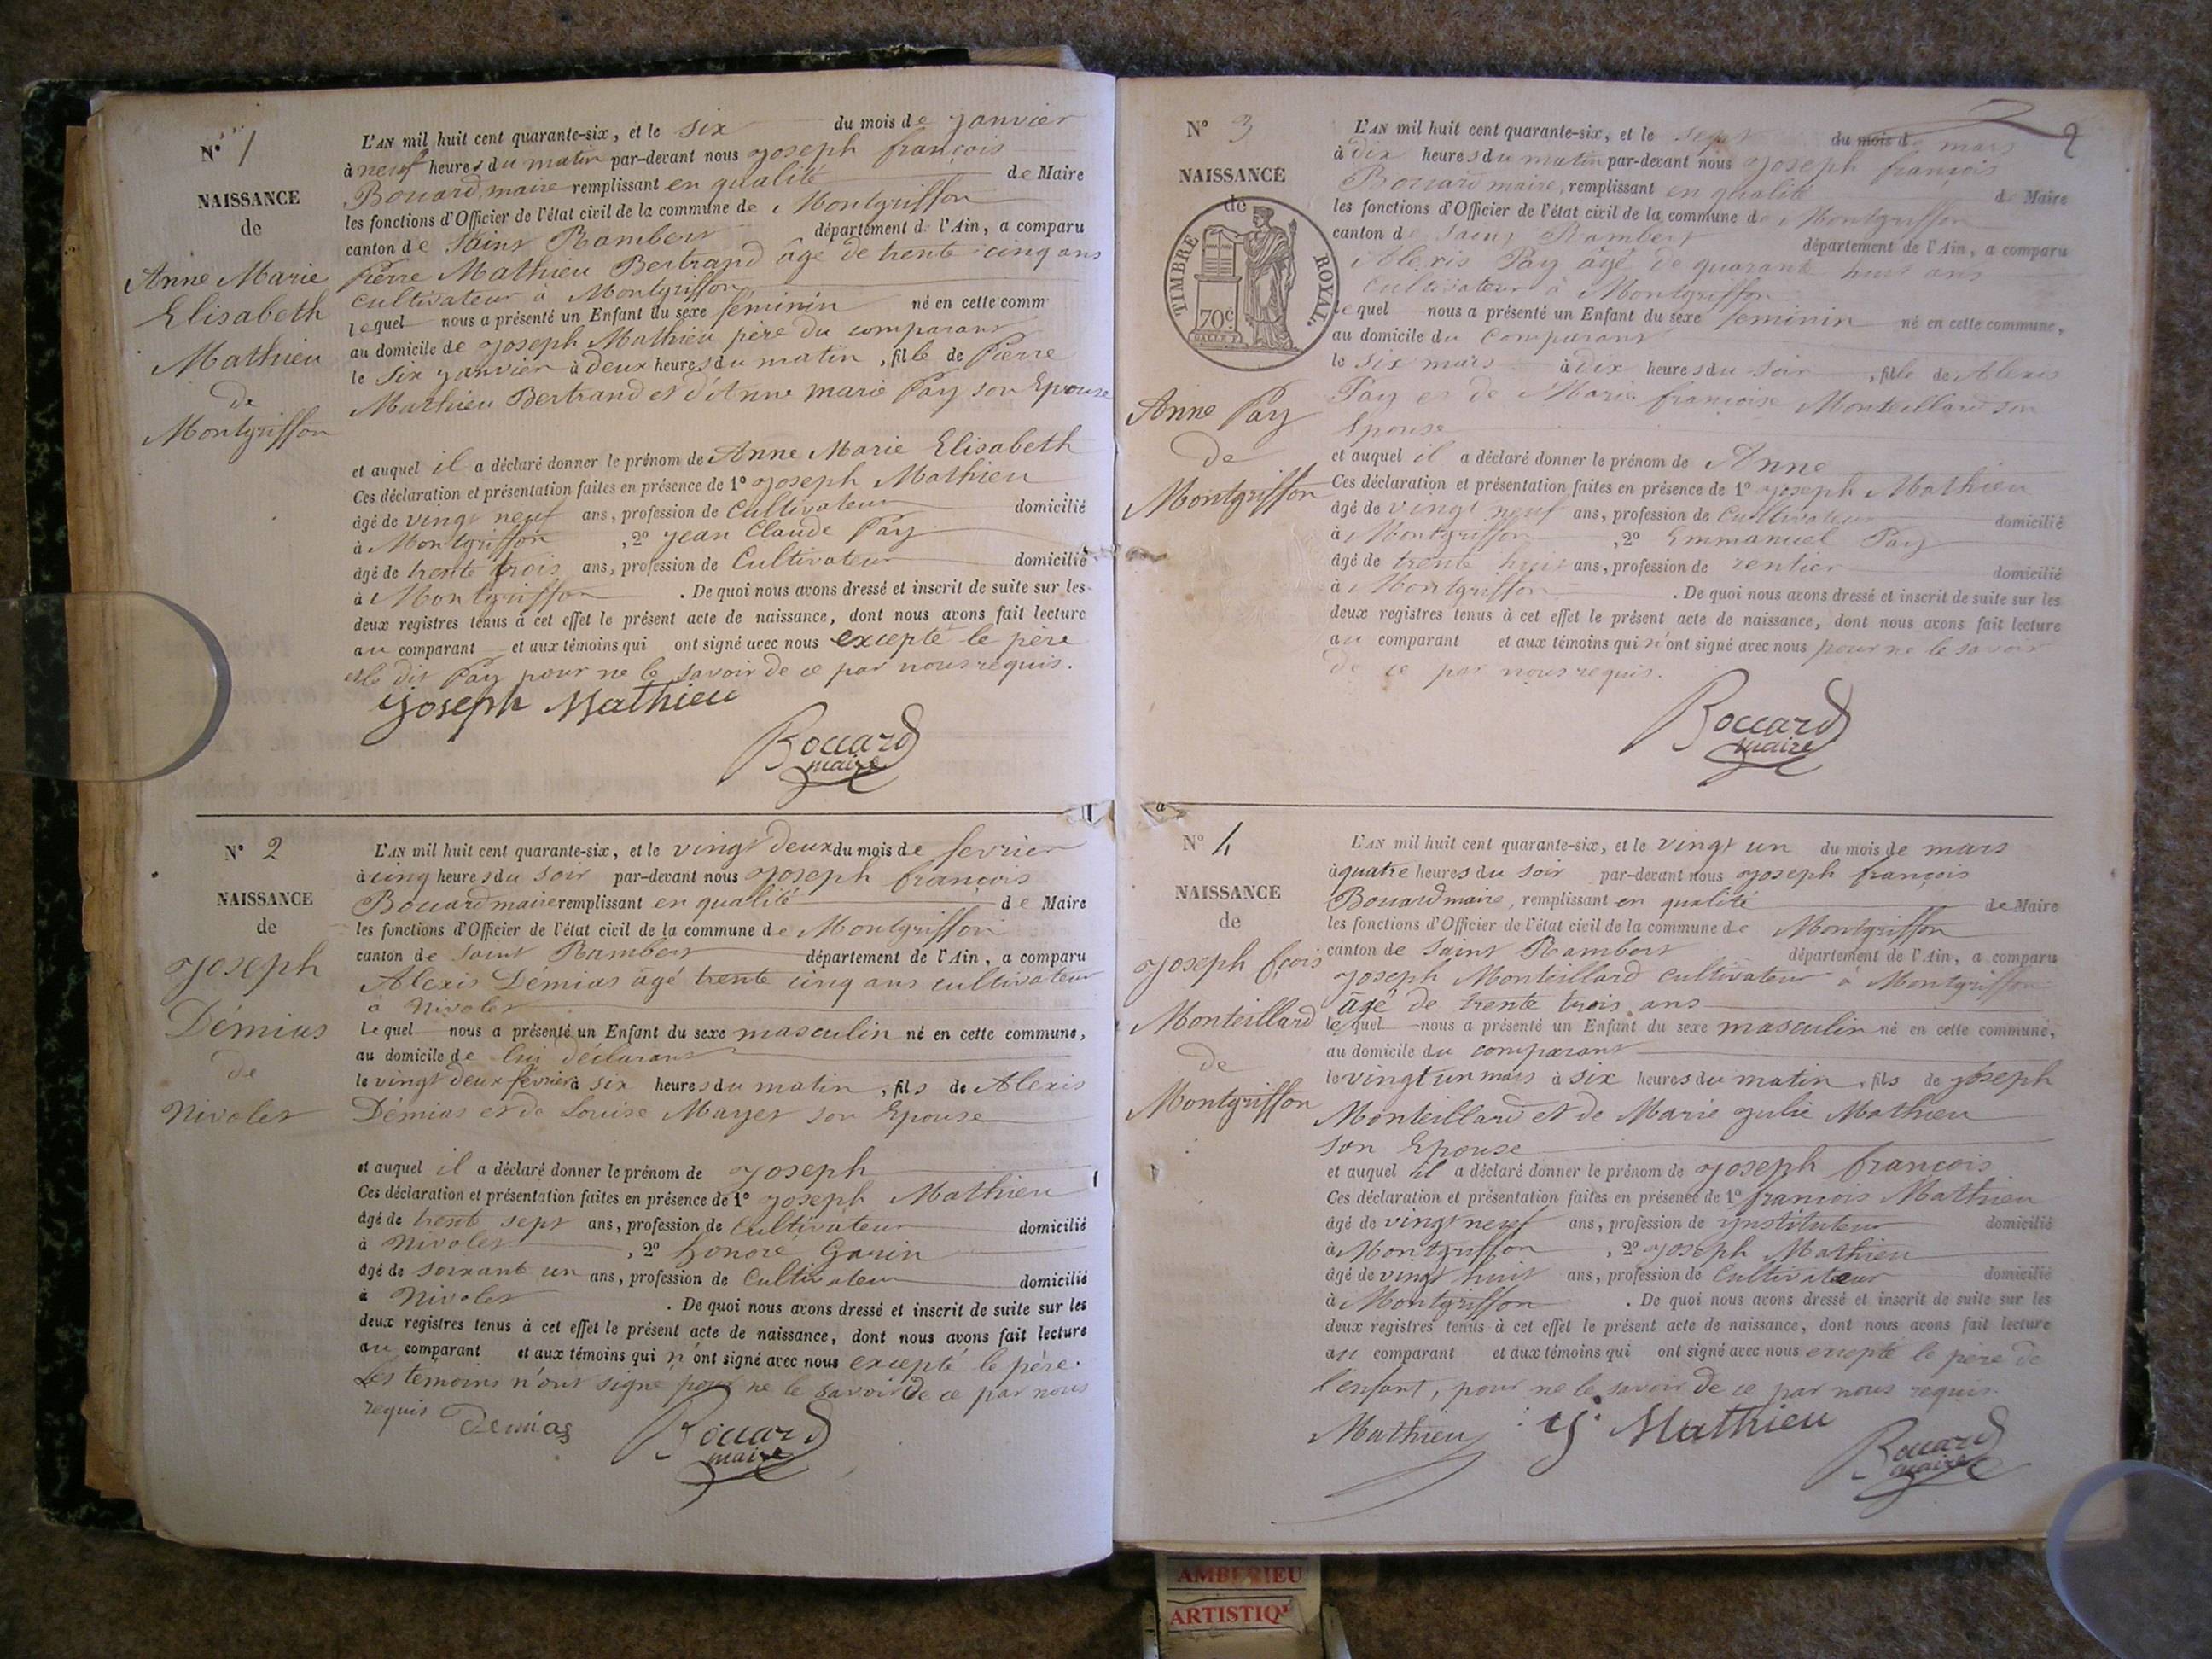 N° 1
NAISSANCE
de
Anne Marie
Elisabeth
Mathieu
de
Montgriffon
L'AN mil huit cent quarante-six, et le six du mois de janvier
à neuf heures du matin par-devant nous Joseph françois
Bouard, maire remplissant en qualité de Maire
les fonctions d'Officier de l'état civil de la commune de Montgriffon
canton de Saint Rambert département de l'Ain, a comparu
Pierre Mathieu Bertrand âgé de trente cinq ans
cultivateur à Montgriffon
lequel nous a présenté un Enfant du sexe féminin né en cette comm
au domicile de Joseph Mathieu père du comparant
le six janvier à deux heures du matin, fille de Pierre
Mathieu Bertrand et d'Anne marie Pay son Epouse
et auquel il a déclaré donner le prénom de Anne Marie Elisabeth
Ces déclaration et présentation faites en présence de 1° Joseph Mathieu
âgé de vingt neuf ans, profession de Cultivateur domicilié
à Montgriffon, 2° Jean Claude Pay
âgé de trente trois ans, profession de Cultivateur domicilié
à Montgriffon. De quoi nous avons dressé et inscrit de suite sur les
deux registres tenus à cet effet le présent acte de naissance, dont nous avons fait lecture
au comparant et aux témoins qui ont signé avec nous excepté le père
et le dit Pay pour ne le savoir de ce par nous requis.
Joseph Mathieu
Bouard
maire
N° 2
NAISSANCE
de
Joseph
Démias
de
Nivolet
L'AN mil huit cent quarante-six, et le vingt deux du mois de fevrier
à cinq heures du soir par-devant nous Joseph françois
Bouard maire remplissant en qualité de Maire
les fonctions d'Officier de l'état civil de la commune de Montgriffon
canton de Saint Rambert département de l'Ain, a comparu
Alexis Démias âgé trente cinq ans cultivateur
à Nivolet
lequel nous a présenté un Enfant du sexe masculin né en cette commune,
au domicile de lui déclarant
le vingt deux février à six heures du matin, fils de Alexis
Démias et de Louise Mayet son Epouse
et auquel il a déclaré donner le prénom de Joseph
Ces déclaration et présentation faites en présence de 1° Joseph Mathieu
âgé de trente sept ans, profession de Cultivateur domicilié
à Nivolet, 2° honoré Garin
âgé de soixante un ans, profession de Cultivateur domicilié
à Nivolet. De quoi nous avons dressé et inscrit de suite sur les
deux registres tenus à cet effet le présent acte de naissance, dont nous avons fait lecture
au comparant et aux témoins qui n'ont signé avec nous excepté le père.
Les témoins n'ont signé pour ne le savoir de ce par nous
requis
Demias
Bouard
maire
2
N° 3
NAISSANCE
de
TIMBRE ROYAL.
70c
Anne Pay
de
Montgriffon
L'AN mil huit cent quarante-six, et le sept du mois de mars
à dix heures du matin par-devant nous Joseph françois
Bouard maire, remplissant en qualité de Maire
les fonctions d'Officier de l'état civil de la commune de Montgriffon
canton de Saint Rambert département de l'Ain, a comparu
Alexis Pay âgé de quarante huit ans
Cultivateur à Montgriffon
lequel nous a présenté un Enfant du sexe féminin né en cette commune,
au domicile du comparant
le six mars à dix heures du soir, fille de Alexis
Pay et de Marie françoise Monteillard son
Epouse
et auquel il a déclaré donner le prénom de Anne
Ces déclaration et présentation faites en présence de 1° Joseph Mathieu
âgé de vingt neuf ans, profession de Cultivateur domicilié
à Montgriffon, 2° Emmanuel Pay
âgé de trente huit ans, profession de rentier domicilié
à Montgriffon. De quoi nous avons dressé et inscrit de suite sur les
deux registres tenus à cet effet le présent acte de naissance, dont nous avons fait lecture
au comparant et aux témoins qui n'ont signé avec nous pour ne le savoir
de ce par nous requis.
Bouard
maire
N° 4
NAISSANCE
de
Joseph fçois
Monteillard
de
Montgriffon
L'AN mil huit cent quarante-six, et le vingt un du mois de mars
à quatre heures du soir par-devant nous Joseph françois
Bouard maire, remplissant en qualité de Maire
les fonctions d'Officier de l'état civil de la commune de Montgriffon
canton de Saint Rambert département de l'Ain, a comparu
Joseph Monteillard Cultivateur à Montgriffon
âgé de trente trois ans
lequel nous a présenté un Enfant du sexe masculin né en cette commune,
au domicile du comparant
le vingt un mars à six heures du matin, fils de Joseph
Monteillard et de Marie Julie Mathieu
son Epouse
et auquel il a déclaré donner le prénom de Joseph françois
Ces déclaration et présentation faites en présence de 1° françois Mathieu
âgé de vingt neuf ans, profession de instituteur domicilié
à Montgriffon, 2° Joseph Mathieu
âgé de vingt huit ans, profession de Cultivateur domicilié
à Montgriffon. De quoi nous avons dressé et inscrit de suite sur les
deux registres tenus à cet effet le présent acte de naissance, dont nous avons fait lecture
au comparant et aux témoins qui ont signé avec nous excepté le père de
l'enfant, pour ne le savoir de ce par nous requis.
Mathieu
J. Mathieu
Bouard
maire
AMBERIEU
ARTISTIQ